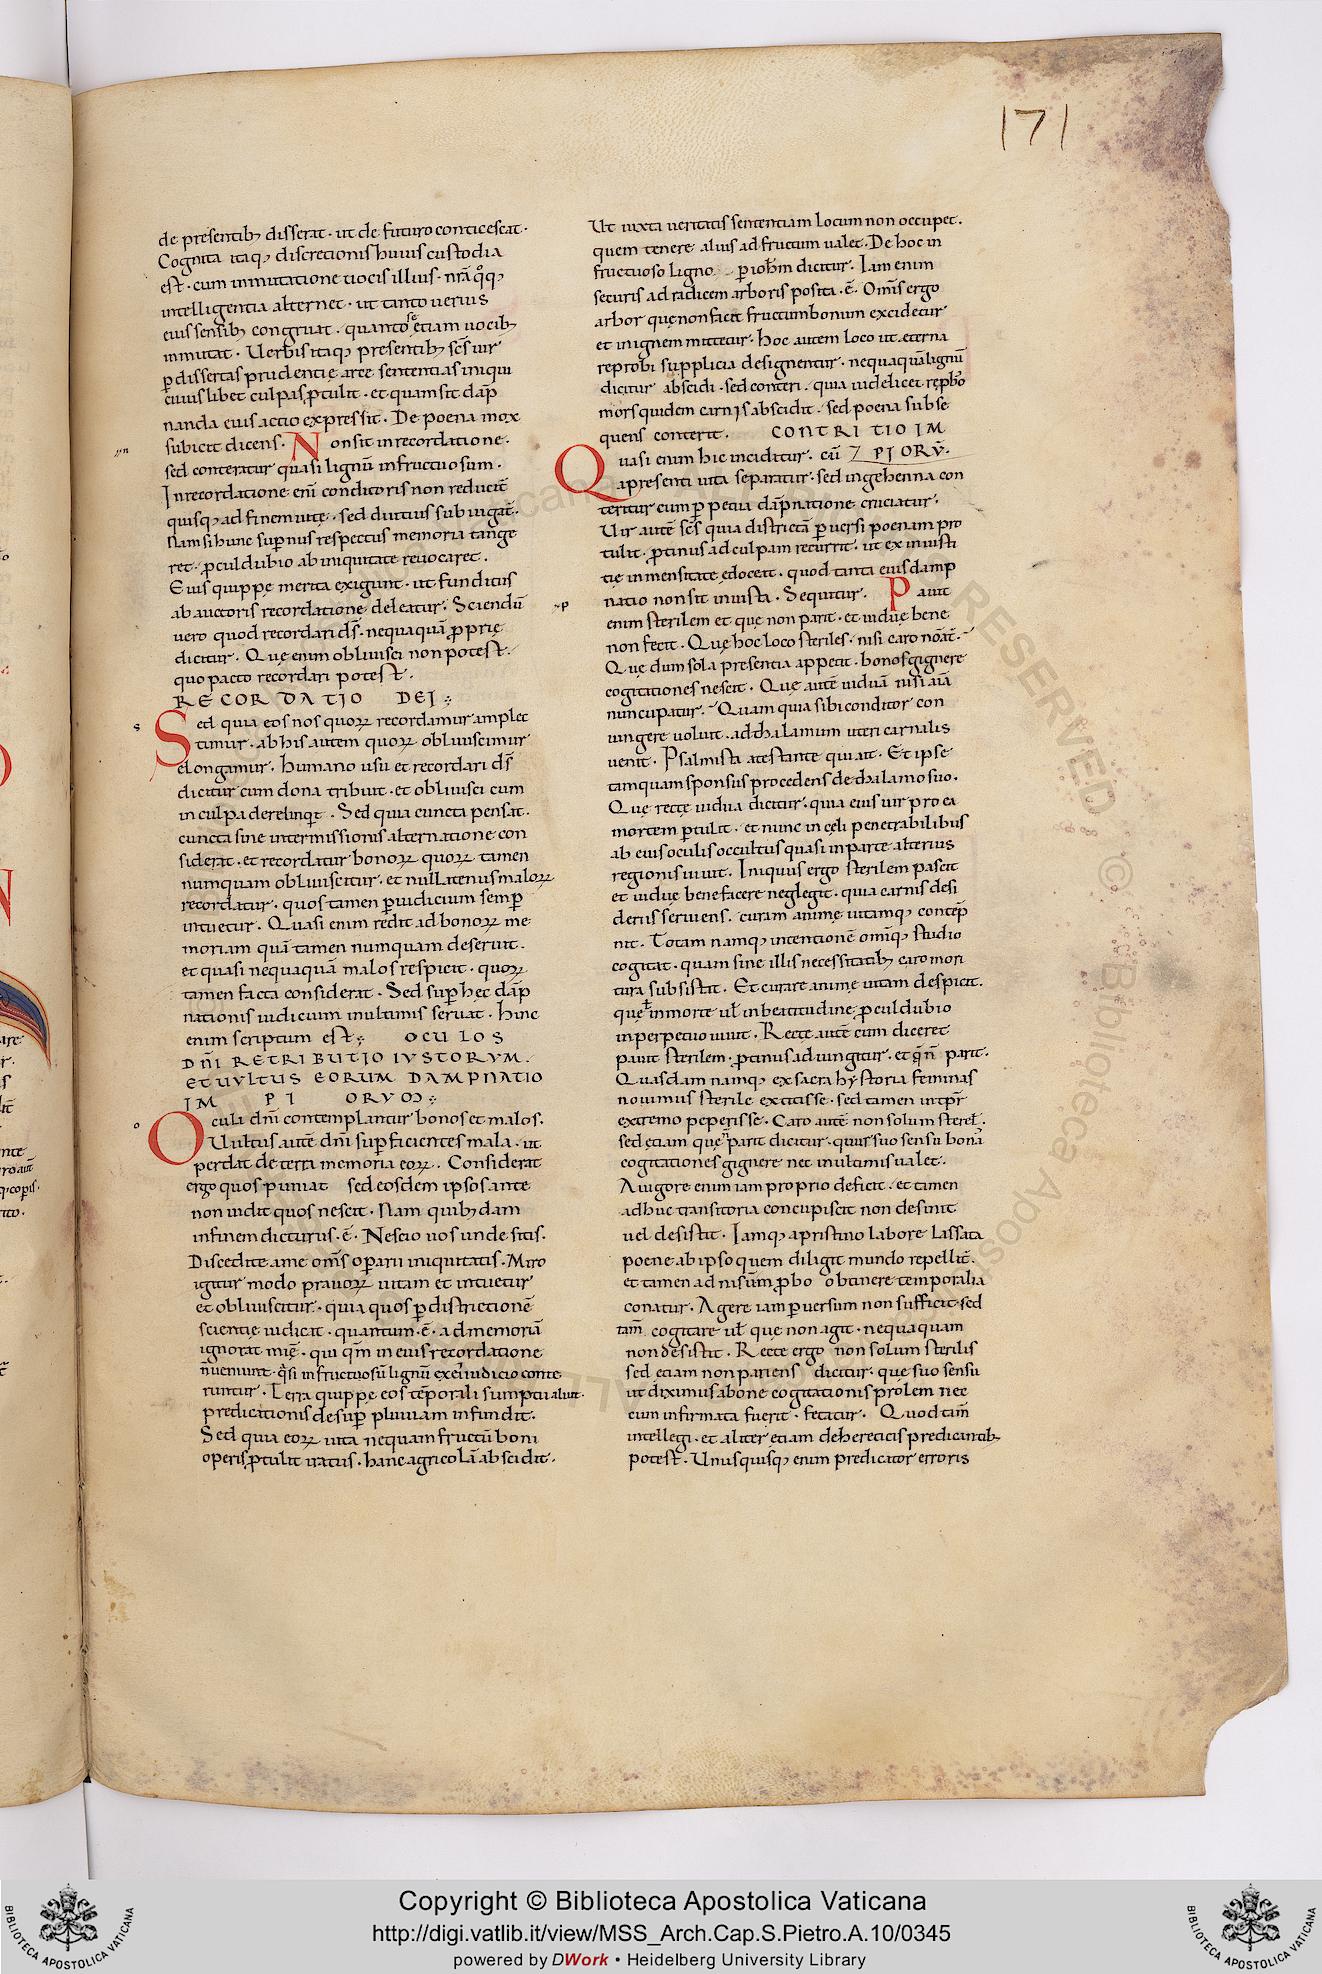 171
de presentib; disserat · ut de futuro conticescat ·
Cognita itaq; discretionis huius custodia
est · cum inmutatione uocis illius · nr̄a q̊q;
intelligentia alternet · ut tanto uerius
eius sensib; congruat · quanto se etiam uocib;
inmutat · Uerbis itaq; presentib; sc̄s uir
p̄ dissertas prudentię aree sententias iniqui
cuius libet culpas ptulit · et quam sit dāp
nanda eius actio expressit · De poena mox
subicit dicens · Non sit in recordatione ·
sed conteratur quasi lignū infructuosum ·
In recordatione enī conditoris non reducit̄
quisq; ad finem uitę · sed diutius subiugat̄ ·
Nam si hunc sup̄nus respectus memoria tange
ret · p̄culdubio ab iniquitate reuocaret ·
Eius quippe merita exigunt · ut funditus
ab auctoris recordatione deleatur · Sciendū
uero quod recordari ds̄ · nequaquā p̄prię
dicitur · Quę enim obliuisci non potest ·
quo pacto recordari potest ·
RECORDATIO DEI
Sed quia eos nos quoꝝ recordamur amplec
timur · ab his autem quoꝝ obliuiscimur
elongamur · humano usu et recordari ds̄
dicitur cum dona tribuit · et obliuisci cum
in culpa derelinqt · Sed quia cuncta pensat ·
cuncta sine intermissionis alternatione con
siderat · et recordatur bonoꝝ quoꝝ tamen
numquam obliuiscitur · et nullatenus maloꝝ
recordatur · quos tamen p̄ iudicium semp̄
intuetur · Quasi enim redit ad bonoꝝ me
moriam quā tamen numquam deseruit ·
et quasi nequaquā malos respicit · quoꝝ
tamen facta considerat · Sed sup̄ hęc dāp
nationis iudicium in ultimis seruat · hinc
enim scriptum est · OCULOS
DN̄I RETRIBUTIO IVSTORVM ·
ET UVLTUS EORUM DAMPNATIO
IMPIORVM
Oculi dn̄i contemplantur bonos et malos ·
Uultus autē dn̄i sup̄ ficientes mala · ut
perdat de terra memoria eoꝝ · Considerat
ergo quos puniat sed eosdem ipsos ante
non uidit quos nescit · Nam quib; dam
in finem dicturus · ē · Nescio uos unde sitis ·
Discedite a me om̄s op̄arii iniquitatis · Miro
igitur modo prauoꝝ uitam et intuetur
et obliuiscitur · quia quos p̄ districtionē
scientię iudicat · quantum · ē · ad memoriā
ignorat mię · qui qm̄ in eius recordatione
n̄ ueniunt · q̄si infructuosū lignū ex ei iudicio conte
runtur · Terra quippe eos tēporali sumptu aluit ·
predicationis desup̄ pluuiam infundit ·
Sed quia eoꝝ uita nequam fructū boni
operis ptulit iratus · hanc agricola abscidit ·
Ut iuxta ueritatis sententiam locum non occupet ·
quem tenere alius ad fructum ualet · De hoc in
fructuoso ligno p̄ ioh̄m dicitur · Iam enim
securis ad radicem arboris posita · ē · Om̄s ergo
arbor quę non facit fructum bonum excidetur
et in ignem mittetur · hoc autem loco ut eterna
reprobi supplicia designentur · nequaquā lignū
dicitur abscidi · sed conteri · quia uidelicet repbo
mors quidem carnis abscidit · sed poena subse
quens conterit · CONTRITIO IM
PIORŪ ·
Quasi enim hic inciditur · cū
a presenti uita separatur · sed in gehenna con
teritur cum p̄petua dāpnatione cruciatur ·
Uir autē sc̄s quia districtā p̄uersi poenam pro
tulit · p̄tinus ad culpam recurrit · ut ex iniusti
tię inmensitate edoceat · quod tanta eius damp
natio non sit iniusta · Sequitur · Pauit
enim sterilem et quę non parit · et uiduę bene
non fecit · Quę hoc loco steriles · nisi caro noāt̄ ·
Quę dum sola presentia appetit · bonos gignere
cogitationes nescit · Quę autē uiduā nisi aīa
nuncupatur · Quam quia sibi conditor con
iungere uoluit · ad thalamum uteri carnalis
uenit · Psalmista atestante qui ait · Et ipse
tamquam sponsus procedens de thalamo suo ·
Quę recte uidua dicitur · quia eius uir pro ea
mortem p̄tulit · et nunc in cęli penetrabilibus
ab eius oculis occultus quasi in parte alterius
regionis uiuit · Iniquus ergo sterilem pascit
et uiduę benefacere neglegit · quia carnis desi
deriis seruiens · curam animę uitamq; contēp
nit · Totam namq; intentionē omīq; studio
cogitat · quam sine illis necessitatib; caro mori
tura subsistat · Et curare animę uitam despicit ·
quę in morte ul̄ in beatitudine p̄culdubio
in perpetuo uiuit · Recte autē cum diceret
pauit sterilem · p̄tinus adiungitur · et q̄ n̄ parit ·
Quasdam namq; ex sacra hystoria feminas
nouimus sterile extitisse · sed tamen in tp̄r
extremo peperisse · Caro autē non solum steril ·
sed etiam quę n̄ parit dicitur · quia suo sensu bonā
cogitationes gignere nec in ultimis ualet ·
A uigore enim iam proprio deficit · et tamen
adhuc transitoria concupiscit non desinit
uel desistit · Iamq; a pristino labore lassata
poene ab ipso quem diligit mundo repellit̄ ·
et tamen ad nisum p̄bo obtinere temporalia
conatur · Agere iam p̄uersum non sufficit · sed
tam̄ cogitare ul̄ quę non agit · nequaquam
non desistit · Recte ergo non solum sterilis
sed etiam non pariens dicitur · quę suo sensu
ut diximus a bone cogitationis prolem nec
cum infirmata fuerit · fetatur · Quod tam̄
intellegi · et aliter etiam de hereticis predicantib;
potest · Unusquisq; enim predicator erroris
Copyright © Biblioteca Apostolica Vaticana
http://digi.vatlib.it/view/MSS_Arch.Cap.S.Pietro.A.10/0345
powered by DWork • Heidelberg University Library
BIBLIOTECA APOSTOLICA VATICANA
BIBLIOTECA APOSTOLICA VATICANA